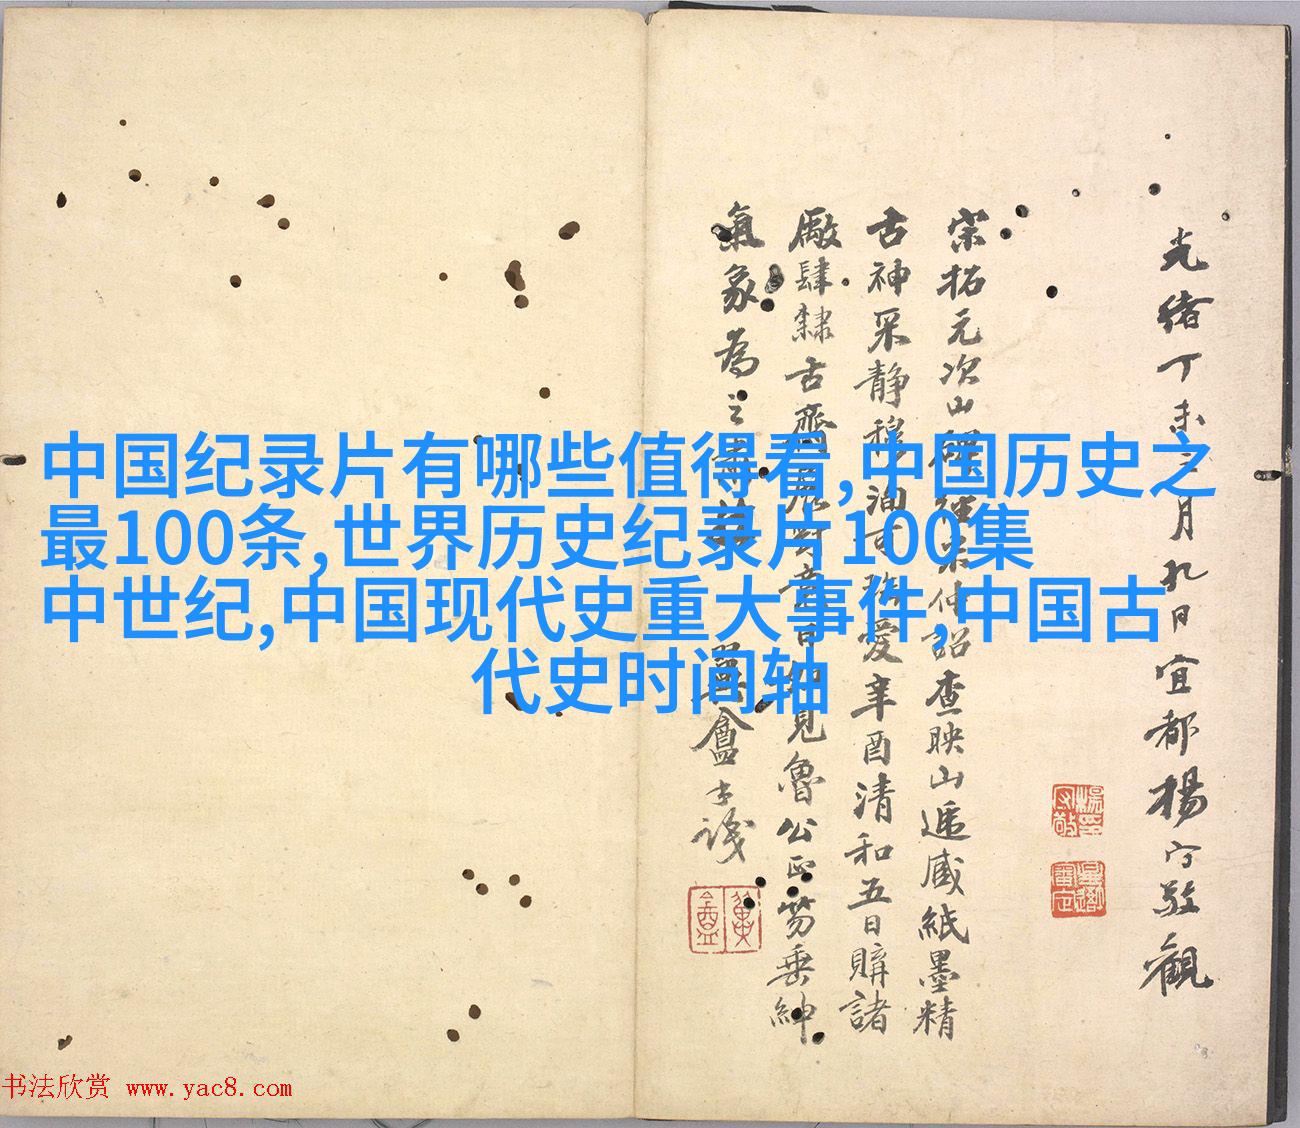 中国纪录片有哪些值得看,中国历史之
最100条,世界历史纪录片100集
中世纪,中国现代史重大事件,中国古
代史时间轴
光緒丁未 月九日宜都楊守敬觀
宋拓元次山碑 查映山遞藏紙墨精
古神采静穆洵可珍愛辛酉清和五日購諸
廠肆隸古齋 對竟日如見魯公正笏垂紳
氣象為之肅 盦
书法欣赏 www.yac8.com